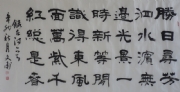 勝日尋芳
泗水濱無
邊光景一
時新等閒
識得東風
面萬紫千
紅總是春